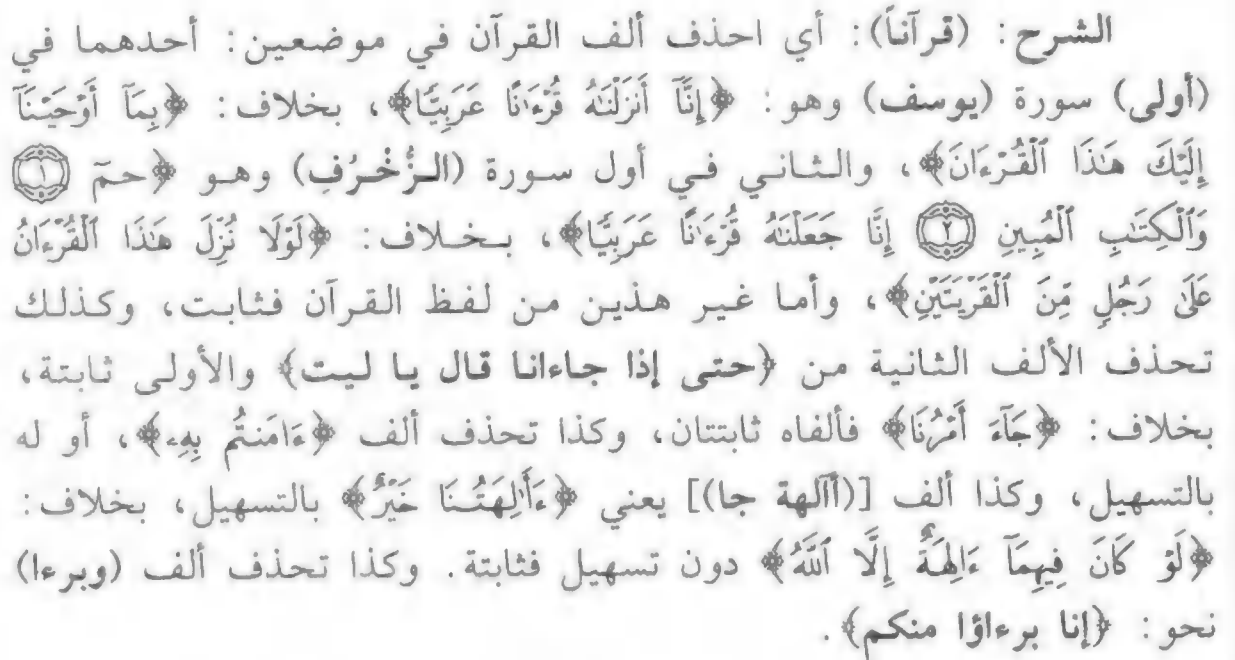 الشرح: (قرآناً): أي احذف ألف القرآن في موضعين: أحدهما في
(أولى) سورة (يوسف) وهو: ﴿إِنَّآ أَنزَلْنَٰهُ قُرْءَٰنًا عَرَبِيًّا﴾، بخلاف: ﴿بِمَآ أَوْحَيْنَآ
إِلَيْكَ هَٰذَا ٱلْقُرْءَانَ﴾، والثاني في أول سورة (الزُّخْرُفِ) وهو ﴿حمٓ ۝١
وَٱلْكِتَٰبِ ٱلْمُبِينِ ۝٢ إِنَّا جَعَلْنَٰهُ قُرْءَٰنًا عَرَبِيًّا﴾، بخلاف: ﴿لَوْلَا نُزِّلَ هَٰذَا ٱلْقُرْءَانُ
عَلَىٰ رَجُلٍ مِّنَ ٱلْقَرْيَتَيْنِ﴾، وأما غير هذين من لفظ القرآن فثابت، وكذلك
تحذف الألف الثانية من ﴿حتى إذا جاءانا قال يا ليت﴾ والأولى ثابتة،
بخلاف: ﴿جَآءَ أَمْرُنَا﴾ فألفاه ثابتتان، وكذا تحذف ألف ﴿ءَامَنتُم بِهِۦ﴾، أو له
بالتسهيل، وكذا ألف [(أآلهة جا)] يعني ﴿ءَأَٰلِهَتُنَا خَيْرٌ﴾ بالتسهيل، بخلاف:
﴿لَوْ كَانَ فِيهِمَآ ءَالِهَةٌ إِلَّا ٱللَّهُ﴾ دون تسهيل فثابتة. وكذا تحذف ألف (وبرءا)
نحو: ﴿إنا برءاؤا منكم﴾.